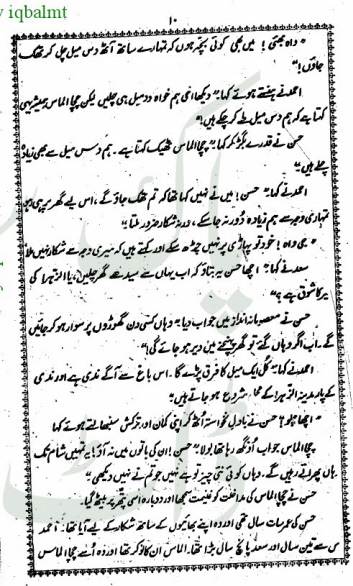 iqbalmt
۱۰
"واہ بھئی! میں بھی کوئی بچہ ہوں کہ تمہارے ساتھ آٹھ دس میل چل کر تھک
جاؤں!"
احمد نے ہنستے ہوئے کہا "دیکھا بھئی ہم خواہ دو میل ہی چلیں لیکن چچا الماس ہمیشہ یہی
کہتا ہے کہ ہم دس میل طے کر چکے ہیں"
حسن نے قدرے بگڑ کر کہا "چچا الماس ٹھیک کہتا ہے۔ ہم دس میل سے بھی زیادہ
چلے ہیں"
احمد نے کہا "حسن! میں نے نہیں کہا تھا کہ تم تھک جاؤ گے، اس لیے گھر پر ہی رہو
تمہاری وجہ سے ہم زیادہ دور نہ جا سکے، ورنہ شکار ضرور ملتا"
"جی واہ! خود تو پہاڑی پر نہیں چڑھ سکے اور کہتے ہیں کہ میری وجہ سے شکار نہیں ملا
سعد نے کہا "اچھا حسن یہ بتاؤ کہ اب یہاں سے سیدھے گھر چلیں، یا الزہرا کی
سیر کا شوق ہے؟"
حسن نے معصومانہ انداز میں جواب دیا "وہاں کسی دن گھوڑوں پر سوار ہو کر جائیں
گے۔ اب اگر وہاں گئے تو گھر پہنچنے میں دیر ہو جائے گی!"
احمد نے کہا "کل ایک میل کا فرق پڑے گا۔ اس باغ سے آگے ندی ہے اور ندی
کے پار مدینۃ الزہرا کے شروع ہو جاتے ہیں"
"اچھا چلو" حسن نے بادلِ نخواستہ اٹھ کر اپنی کمان اور ترکش سنبھالتے ہوئے کہا
چچا الماس جو اب اونگھ رہا تھا بولا "حسن! ان کی باتوں میں نہ آؤ! یہ تمہیں شام تک
وہاں پھراتے رہیں گے۔ وہاں کوئی نئی چیز تو ہے نہیں جو تم نے نہیں دیکھی"
حسن نے چچا الماس کی مداخلت کو غنیمت سمجھا اور دوبارہ اسی پتھر پر بیٹھ گیا۔
حسن کی عمر سات سال تھی اور وہ اپنے بھائیوں کے ساتھ شکار کے لیے آیا تھا۔ احمد
اس سے تین سال اور سعد پانچ سال بڑا تھا۔ الماس ان کا نوکر تھا اور وہ اُسے چچا الماس